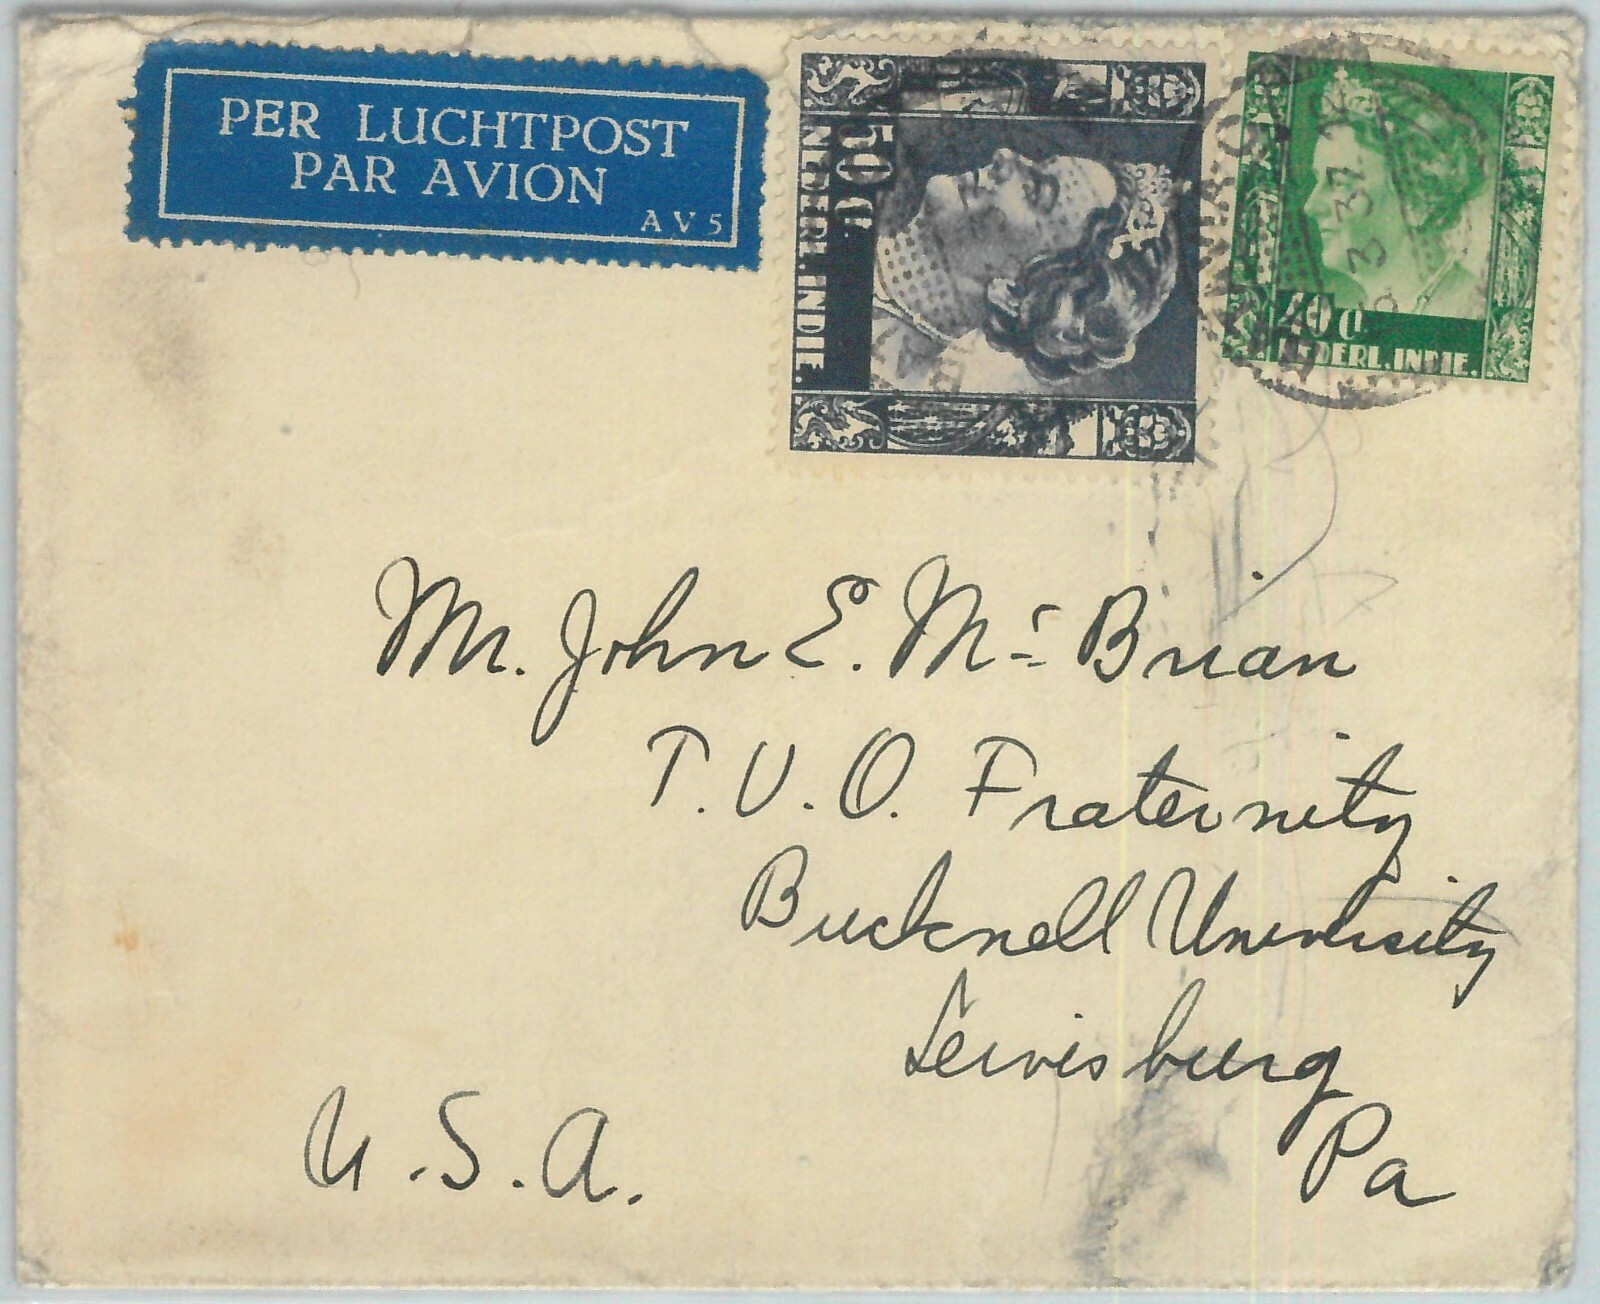 PER LUCHTPOST
PAR AVION
AV5
50 C.
NEDERL. INDIE.
40 C.
NEDERL. INDIE.
3 37
Mr. John E. Mc Brian
T. V. O. Fraternity
Bucknell University
Lewisburg
Pa
U.S.A.